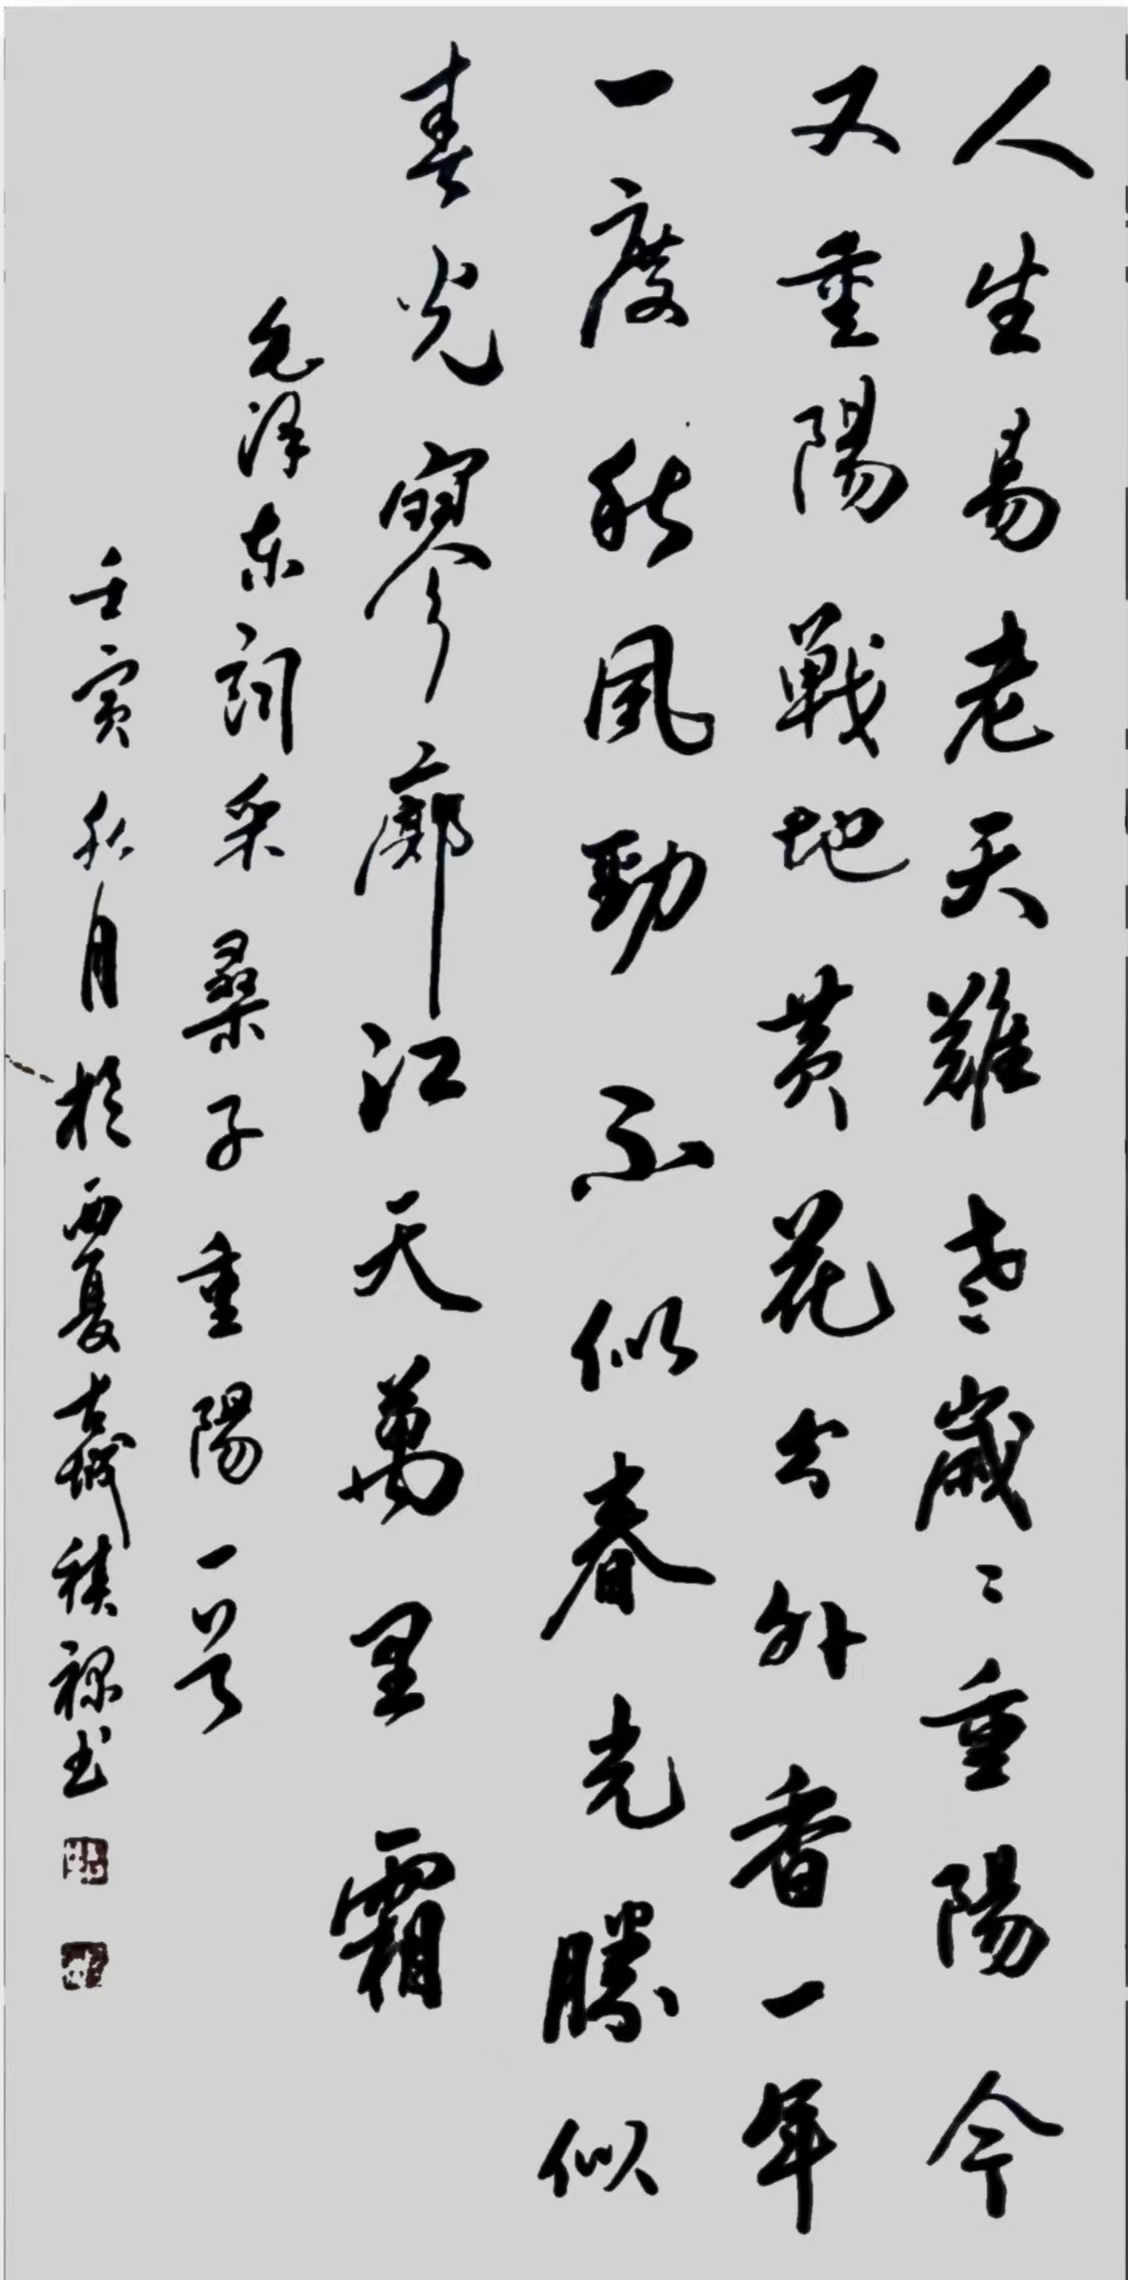 人生易老天難老歲〻重陽今
又重陽戰地黃花分外香一年
一度秋風勁不似春光勝似
春光寥廓江天萬里霜
毛泽东詞采桑子重陽一首
壬寅秋月於西夏古城禄书